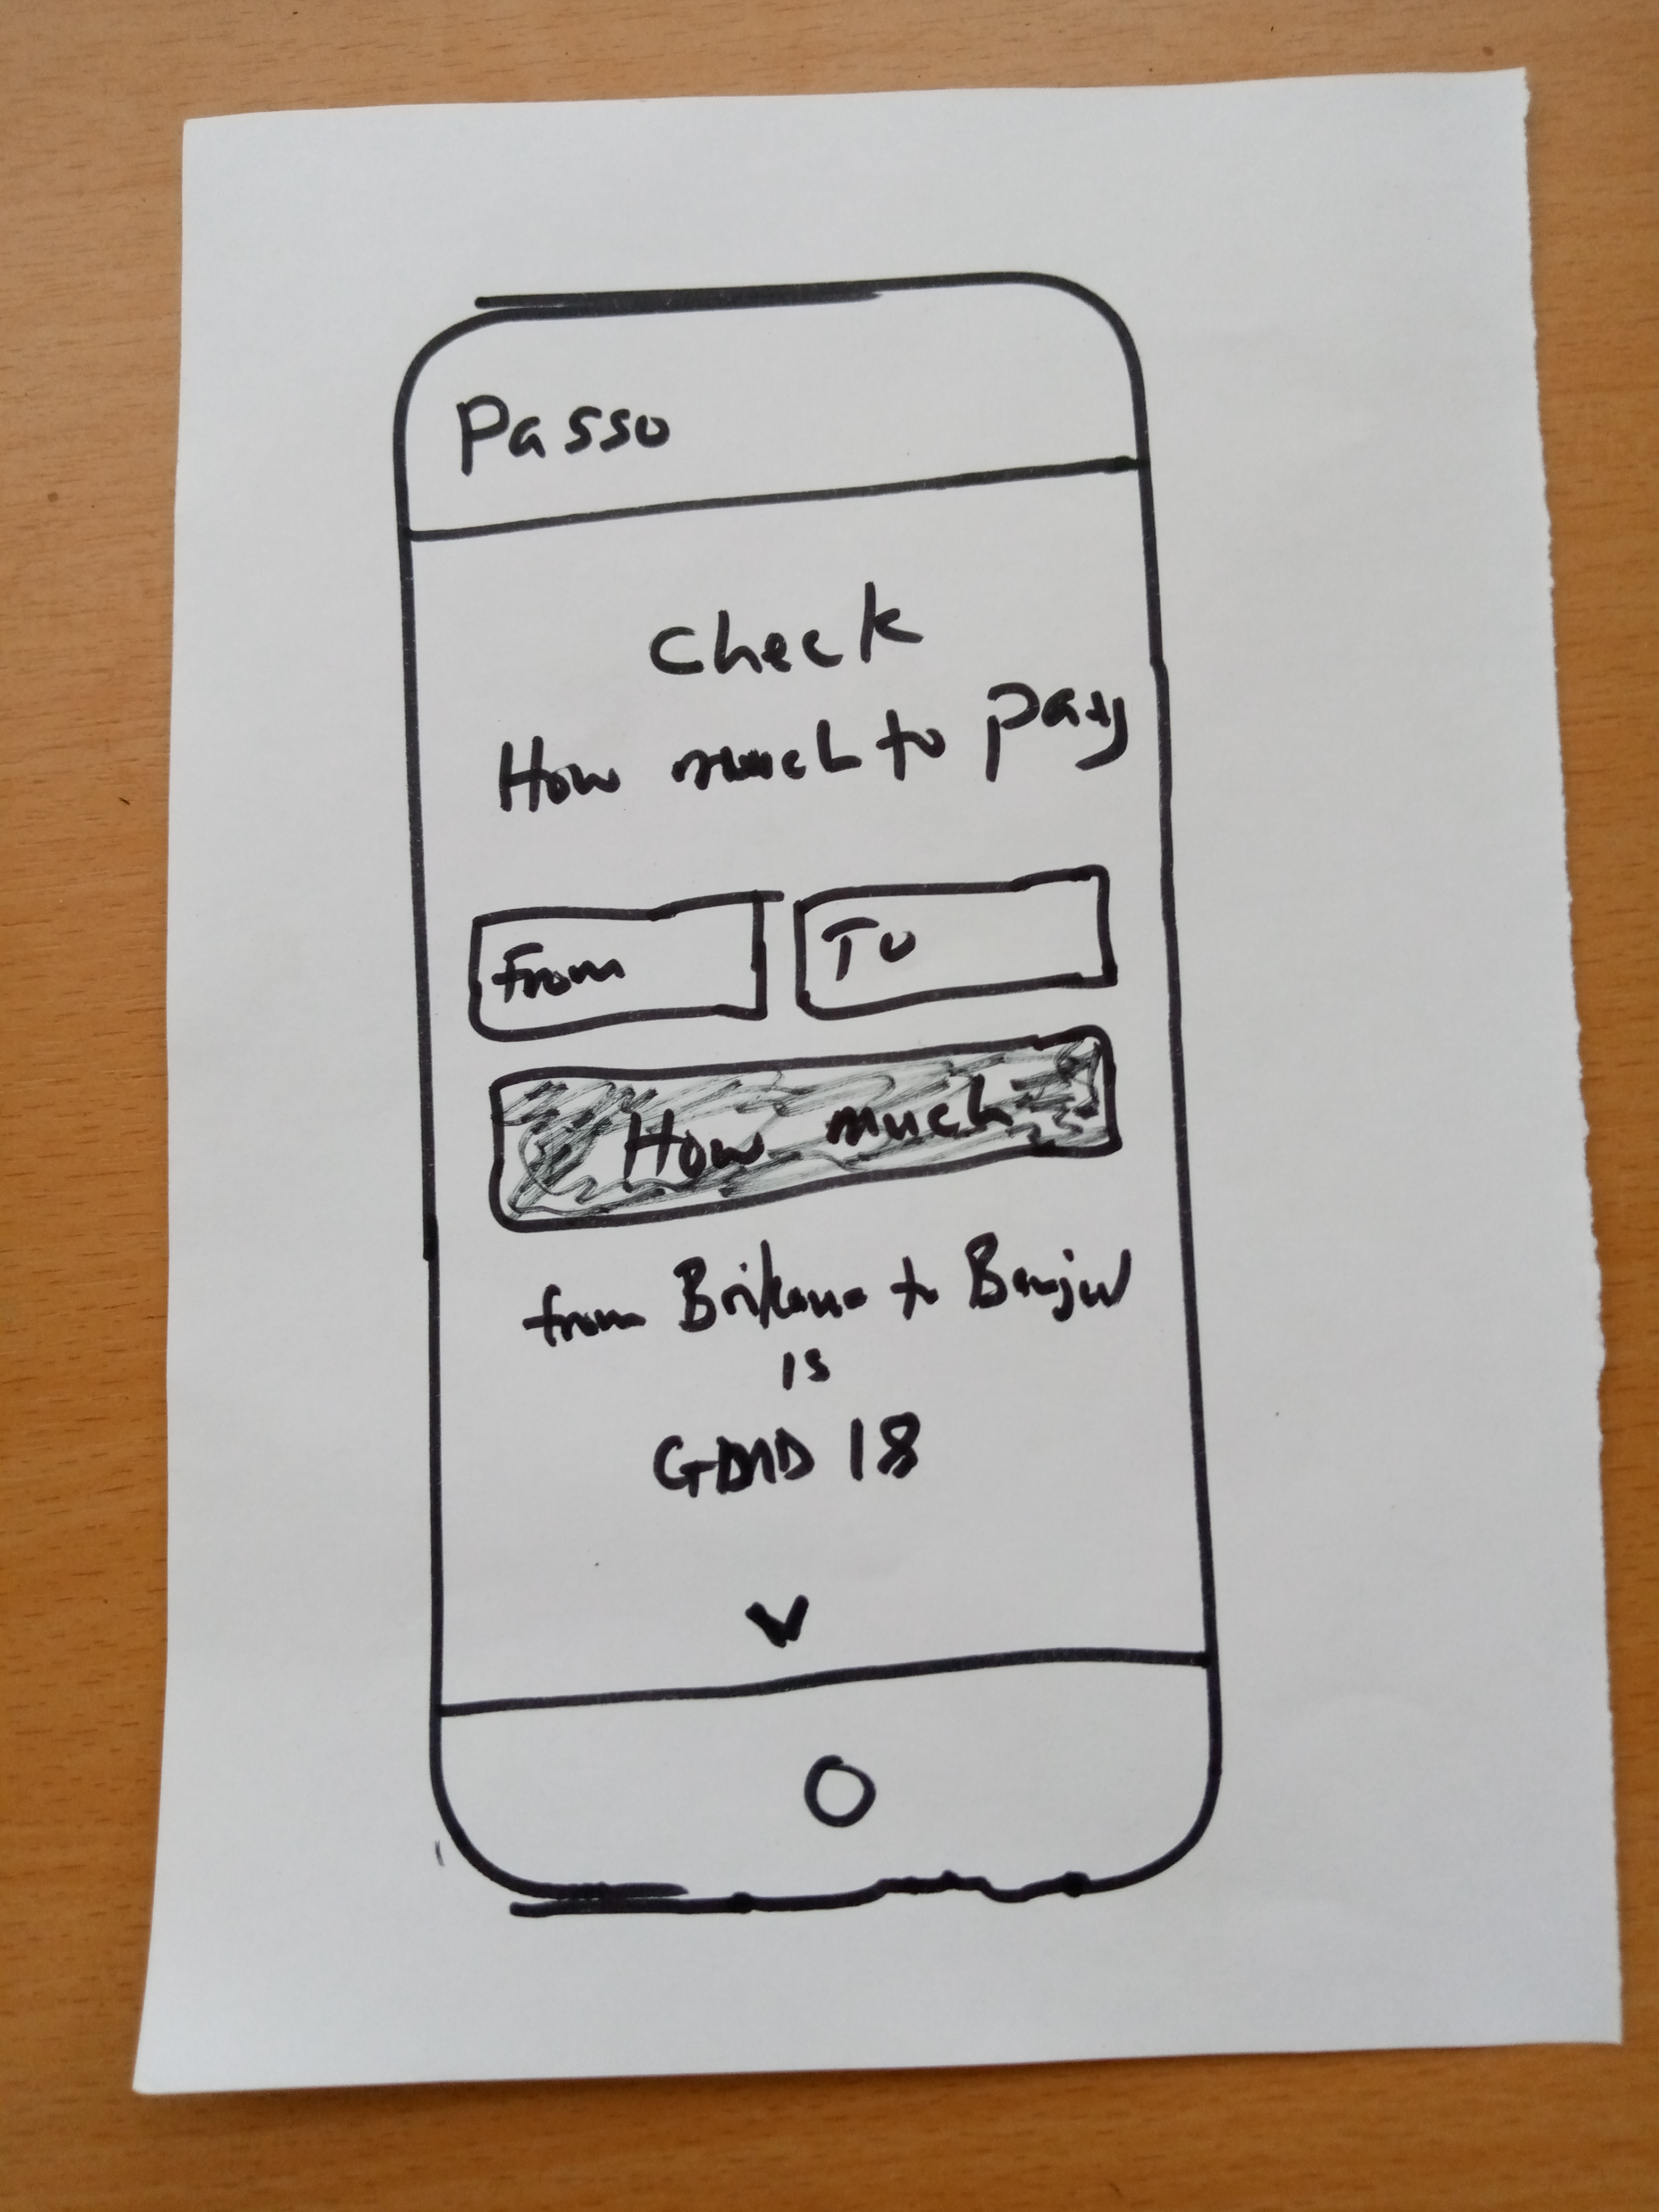 Passo
Check
How much to pay
From
To
How much
from Brikama to Banjul
is
GMD 18